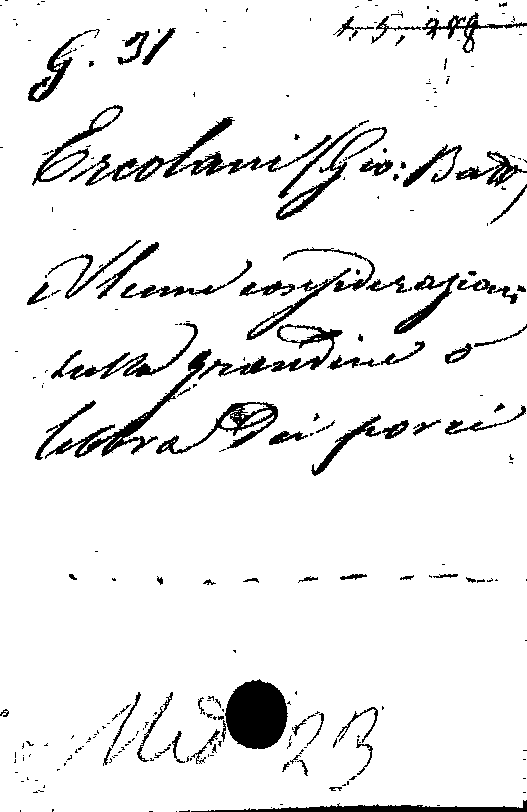 G. 31
1, 5, 278
Ercolani (Gio: Batt.)
Alcune considerazioni
sulla grandine o
lebbra dei porci
Med 23